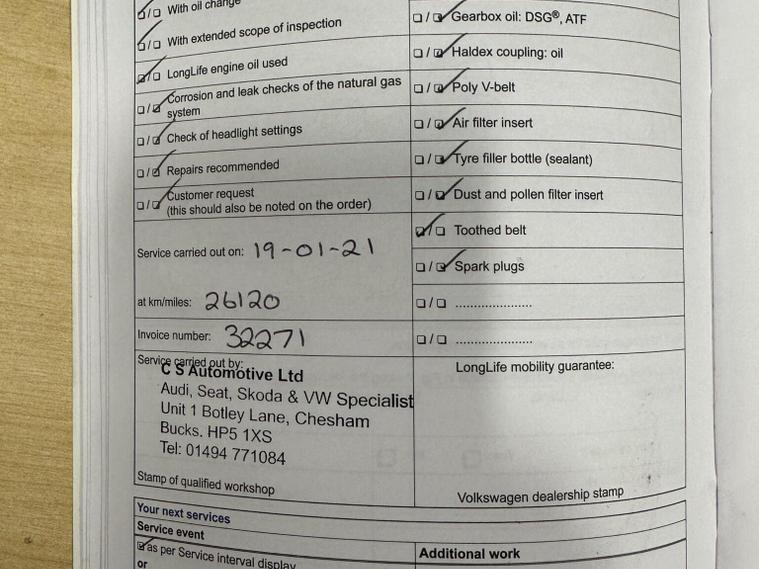 With oil change
With extended scope of inspection
LongLife engine oil used
Corrosion and leak checks of the natural gas
system
Check of headlight settings
Repairs recommended
Customer request
(this should also be noted on the order)
Service carried out on: 19-01-21
at km/miles: 26120
Invoice number: 32271
Service carried out by:
C S Automotive Ltd
Audi, Seat, Skoda & VW Specialist
Unit 1 Botley Lane, Chesham
Bucks. HP5 1XS
Tel: 01494 771084
Stamp of qualified workshop
Gearbox oil: DSG®, ATF
Haldex coupling: oil
Poly V-belt
Air filter insert
Tyre filler bottle (sealant)
Dust and pollen filter insert
Toothed belt
Spark plugs
LongLife mobility guarantee:
Volkswagen dealership stamp
Your next services
Service event
as per Service interval display
or
Additional work